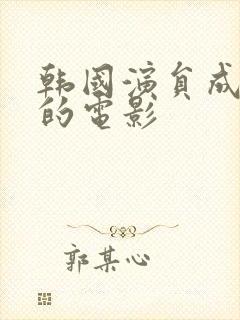 韩國演員成
的電影
郭某心